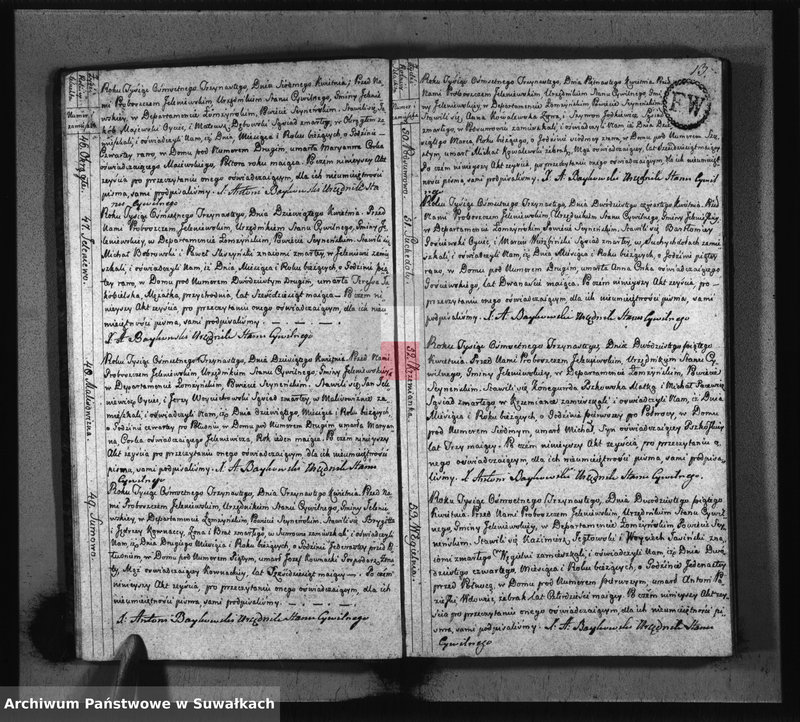 46. Okrągłe.
Roku Tysiąc Osmsetnego Trzynastego, Dnia Siódmego Kwietnia; Przed Na
mi Proboszczem Jeleniewskim, Urzędnikiem Stanu Cywilnego, Gminy Jelenie
wskiey, w Departamencie Łomżyńskim, Powiecie Seyneńskim. Stawili się Ja
kób Majewski Oyciec, i Mateusz Dębowski Sąsiad zmarłey, w Okrągłem za
mieszkali, i oświadczyli Nam, iż Dnia, Miesiąca i Roku bieżących, o Godzinie
Czwartey rano, w Domu pod Numerem Drugim, umarła Maryanna Corka
oświadczaiącego Majewskiego, Półtora roku maiąca. Po czem ninieyszy Akt
zeyścia po przeczytaniu onego oświadczaiącym, dla ich nieumieiętności
pisma, sami podpisaliśmy. X. Antoni Baykowski Urzędnik Sta
nu Cywilnego
47. Jeleniewo.
Roku Tysiąc Osmsetnego Trzynastego, Dnia Dziewiątego Kwietnia. Przed
Nami Proboszczem Jeleniewskim, Urzędnikiem Stanu Cywilnego, Gminy Je
leniewskiey, w Departamencie Łomżyńskim, Powiecie Seyneńskim. Stawili się
Michał Bobrowski i Paweł Skrzynski znaiomi zmarłey, w Jeleniewie zamie
szkali, i oświadczyli Nam, iż Dnia, Miesiąca i Roku bieżących, o Godzinie pią
tey rano, w Domu pod Numerem Dwódziestym Drugim, umarła Teressa Ja
kóbielska, Mężatka, przychodnia, lat Sześćdziesiąt maiąca. Po czem ni
nieyszy Akt zeyścia, po przeczytaniu onego oświadczaiącym, dla ich nieu
mieiętności pisma, sami podpisaliśmy.
X. A. Baykowski Urzędnik Stanu Cywilnego
48. Malesowizna.
Roku Tysiąc Osmsetnego Trzynastego, Dnia Dziesiątego Kwietnia. Przed Nami
Proboszczem Jeleniewskim, Urzędnikiem Stanu Cywilnego, Gminy Jeleniewskiey,
w Departamencie Łomżyńskim, Powiecie Seyneńskim. Stawili się Jan Jele
niewicz Oyciec, i Jerzy Woyciechowski Sąsiad zmarłey, w Malesowiznie za
mieszkali, i oświadczyli Nam, iż Dnia Dziewiątego, Miesiąca i Roku bieżących,
o Godzinie czwartey po Południu, w Domu pod Numerem Drugim umarła Maryan
na, Corka oświadczaiącego Jeleniewicza, Rok ieden maiąca. Po czem ninieyszy
Akt zeyścia, po przeczytaniu onego oświadczaiącym, dla ich nieumieiętności
pisma, sami podpisaliśmy. X. A. Baykowski Urzędnik Stanu
Cywilnego
49. Sumowo.
Roku Tysiąc Osmsetnego Trzynastego, Dnia Trzynastego Kwietnia. Przed Na
mi Proboszczem Jeleniewskim, Urzędnikiem Stanu Cywilnego, Gminy Jelenie
wskiey, w Departamencie Łomżyńskim, Powiecie Seyneńskim. Stawili się Brygitta
i Jędrzey Kownaccy, Żona i Brat zmarłego, w Sumowie zamieszkali, i oświadczyli
Nam, iż Dnia Drugiego, Miesiąca i Roku bieżących, o Godzinie przed
Południem, w Domu pod Numerem Piątym, umarł Jozef Kownacki Gospodarz, Żona
ty, Mąż oświadczaiącey Kownackiey, lat Sześćdziesiąt maiący. Po czem
ninieyszy Akt zeyścia, po przeczytaniu onego oświadczaiącym, dla ich
nieumieiętności pisma, sami podpisaliśmy.
X. Antoni Baykowski Urzędnik Stanu Cywilnego
13.
FW
50.
Roku Tysiąc Osmsetnego Trzynastego, Dnia Piętnastego Kwietnia. Przed
Nami Proboszczem Jeleniewskim, Urzędnikiem Stanu Cywilnego, Gminy
Jeleniewskiey, w Departamencie Łomżyńskim, Powiecie Seyneńskim.
Stawili się, Anna Kowalewska Żona, i Szymon Jodkiewicz Sąsiad
zmarłego, zamieszkali, i oświadczyli Nam, iż Dnia
Roku bieżącego, o Godzinie siódmey rano, w Domu pod Numerem
umarł Michał Kowalewski żebrak, Mąż oświadczaiącey, lat maiący.
Po czem ninieyszy Akt zeyścia, po przeczytaniu onego oświadczaiącym, dla ich nieumieięt
ności pisma, sami podpisaliśmy. X. A. Baykowski Urzędnik Stanu Cywil
51. Suchedoły.
Roku Tysiąc Osmsetnego Trzynastego, Dnia Dwódziestego czwartego Kwietnia. Przed
Nami Proboszczem Jeleniewskim, Urzędnikiem Stanu Cywilnego, Gminy Jeleniewskiey,
w Departamencie Łomżyńskim, Powiecie Seyneńskim. Stawili się Bartłomiey
Oyciec, i Marcin Sąsiad zmarłey, w Suchychdołach zamie
szkali, i oświadczyli Nam, iż Dnia, Miesiąca i Roku bieżących, o Godzinie piątey
rano, w Domu pod Numerem Drugim, umarła Anna Corka oświadczaiącego
lat Dwanaście maiąca. Po czem ninieyszy Akt zeyścia, po prze
czytaniu onego oświadczaiącym, dla ich nieumieiętności pisma, sami
podpisaliśmy. X. A. Baykowski Urzędnik Stanu Cywilnego
52. Krzemianka.
Roku Tysiąc Osmsetnego Trzynastego, Dnia Dwódziestego piątego
Kwietnia. Przed Nami Proboszczem Jeleniewskim, Urzędnikiem Stanu Cy
wilnego, Gminy Jeleniewskiey, w Departamencie Łomżyńskim, Powiecie
Seyneńskim. Stawili się Kunegunda Matka, i Michał
Sąsiad zmarłego, w Krzemiance zamieszkali, i oświadczyli Nam, iż Dnia,
Miesiąca i Roku bieżących, o Godzinie pierwszey po Północy, w Domu
pod Numerem Siódmym, umarł Michał, Syn oświadczaiącey
lat Trzy maiący. Po czem ninieyszy Akt zeyścia, po przeczytaniu o
nego oświadczaiącym, dla ich nieumieiętności pisma, sami podpisa
liśmy. X. Antoni Baykowski Urzędnik Stanu Cywilnego.
53. Węgielnia.
Roku Tysiąc Osmsetnego Trzynastego, Dnia Dwódziestego piątego
Kwietnia. Przed Nami Proboszczem Jeleniewskim, Urzędnikiem Stanu Cywil
nego, Gminy Jeleniewskiey, w Departamencie Łomżyńskim Powiecie Sey
neńskim. Stawili się Kazimierz i Woyciech zna
iomi zmarłego, w Węgielni zamieszkali, i oświadczyli Nam, iż Dnia Dwó
dziestego czwartego, Miesiąca i Roku bieżących, o Godzinie Jedenastey
przed Północą, w Domu pod Numerem pierwszym, umarł Antoni
Wdowiec, żebrak, lat maiący. Po czem ninieyszy Akt zey
ścia po przeczytaniu onego oświadczaiącym, dla ich nieumieiętności pi
sma, sami podpisaliśmy. X. A. Baykowski Urzędnik Stanu
Cywilnego
Archiwum Państwowe w Suwałkach